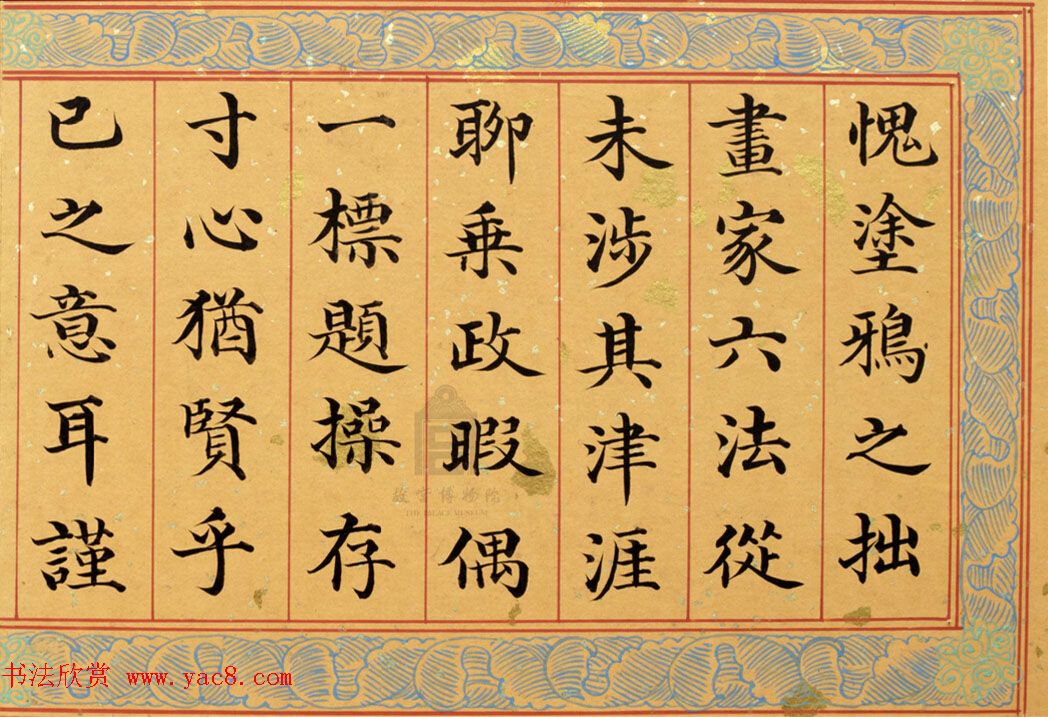 愧塗鴉之拙
畫家六法從
未涉其津涯
聊乗政暇偶
一標題操存
寸心猶賢乎
已之意耳謹
故宫博物院
THE PALACE MUSEUM
书法欣赏 www.yac8.com